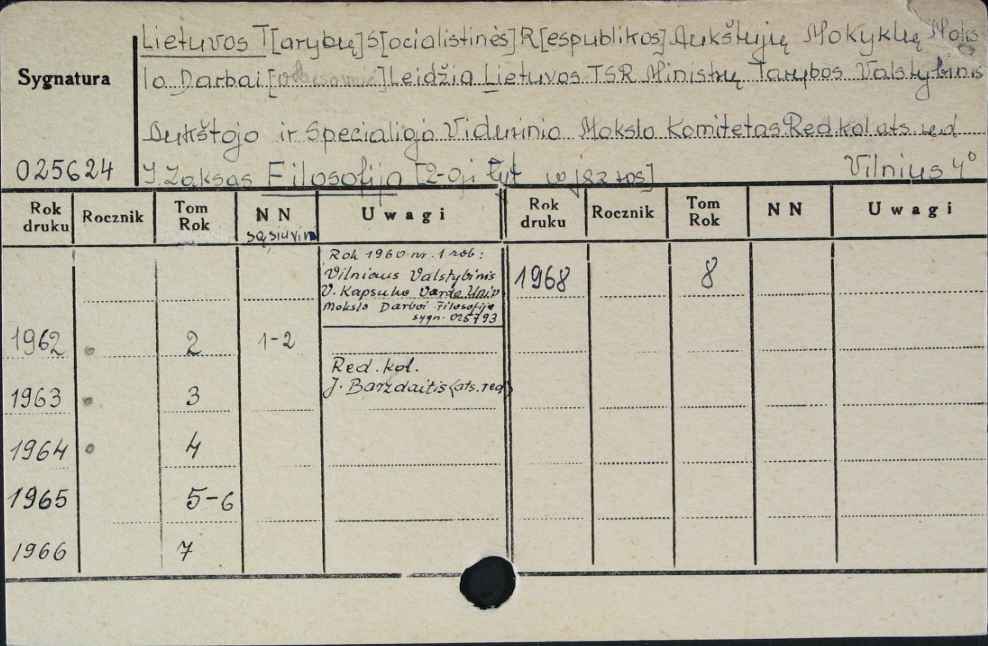 Lietuvos T[arybų] S[ocialistinės] R[espublikos] Aukštųjų Mokyklų Moks
Sygnatura
lo Darbai Leidžia Lietuvos TSR Ministrų Tarybos Valstybinis
Aukštojo ir Specialiojo Vidurinio Mokslo Komitetas Red kol ats. red
025624
J. Zaksas Filosofija [2-oji tyt
Vilnius 4°
Rok druku Rocznik Tom Rok NN Uwagi Rok druku Rocznik Tom Rok NN Uwagi
sąsiuvin
Rok 1960 nr. 1 zob:
Vilniaus Valstybinis
V. Kapsuko Vardo Univ
Mokslo Darbai Filosofija
sygn. 025793
1968 8
1962 2 1-2
Red. kol.
J. Barzdaitis (ats. red)
1963 3
1964 4
1965 5-6
1966 7